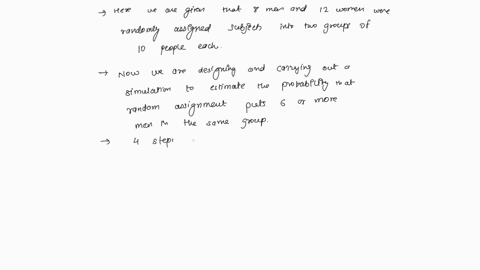 → Here we are given that 8 men and 12 women were
randomly assigned subject into two groups of
10 people each.
→ Now we are designing and carrying out a
simulation to estimate the probability that
random assignment puts 6 or more
men in the same group.
→ 4 step: